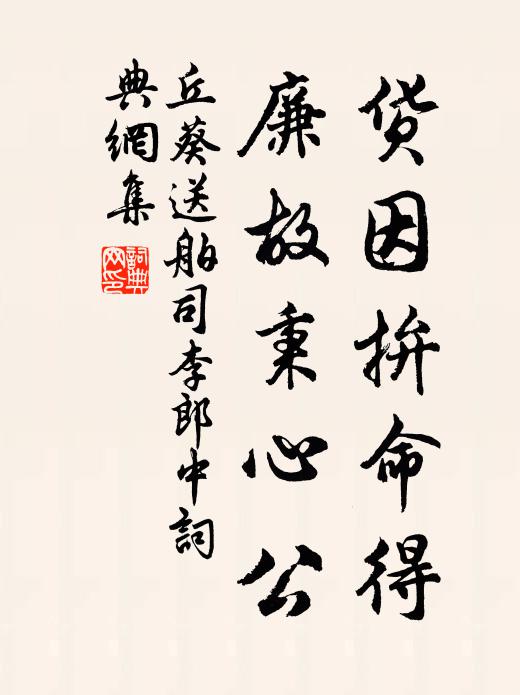 货因拚命得
廉故秉心公
丘葵送舶司李郎中詞
典網集
詞典
网印